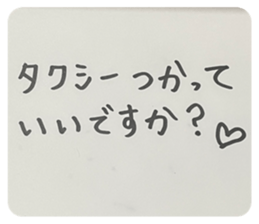 タクシーつかって
いいですか？♡